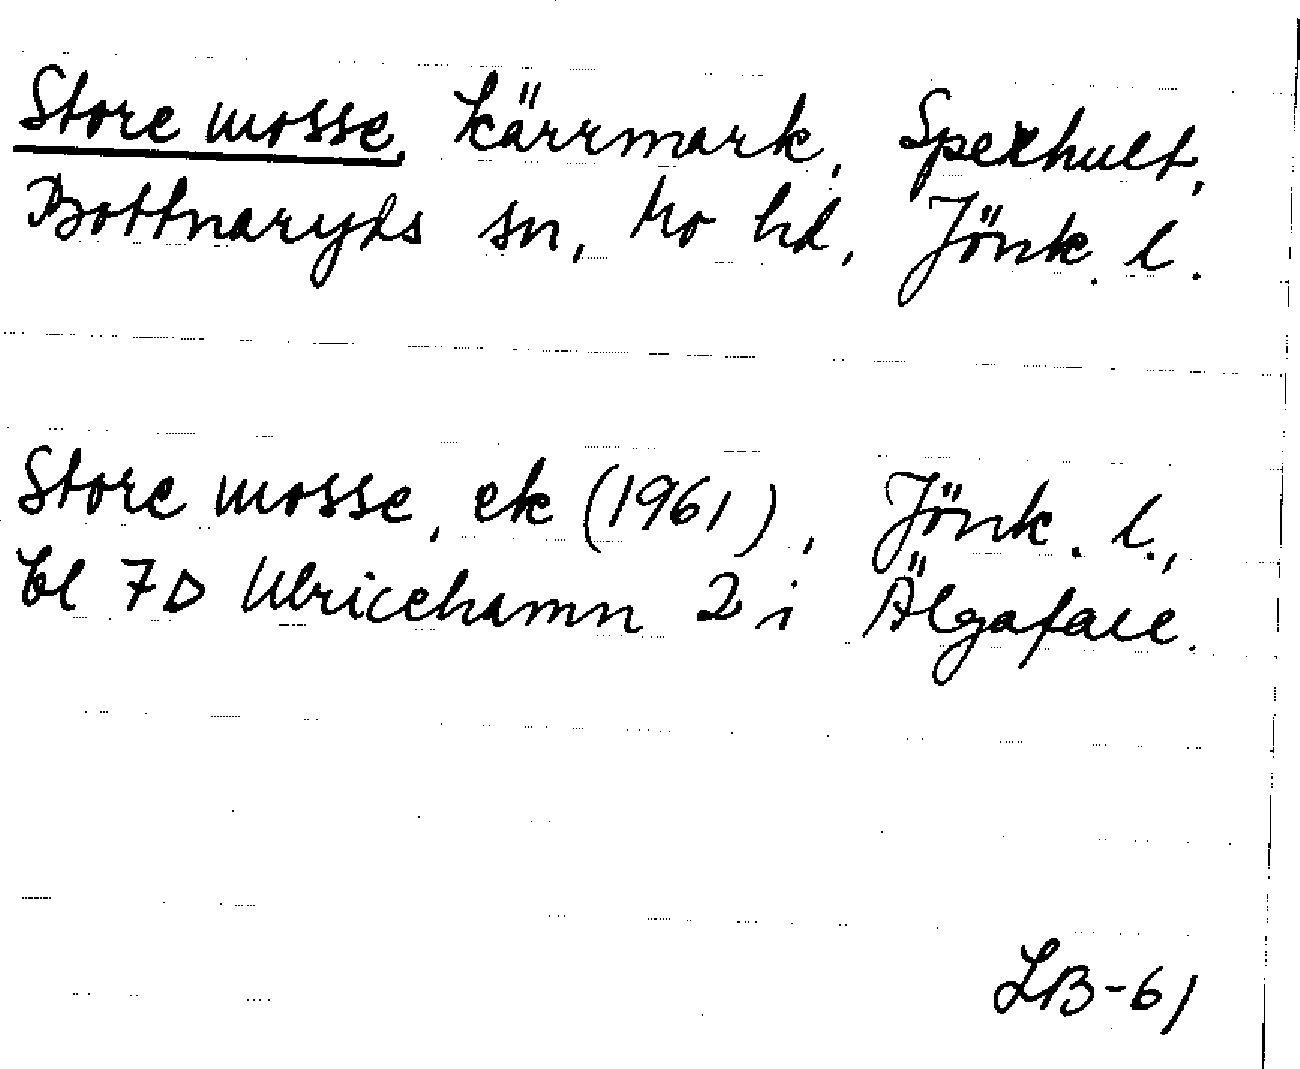 Store mosse, kärrmark, Spexhult,
Bottnaryds sn, Mo hd, Jönk. l.
Store mosse, ek (1961), Jönk. l.,
bl 7D Ulricehamn 2 i Älgafall.
LB-61